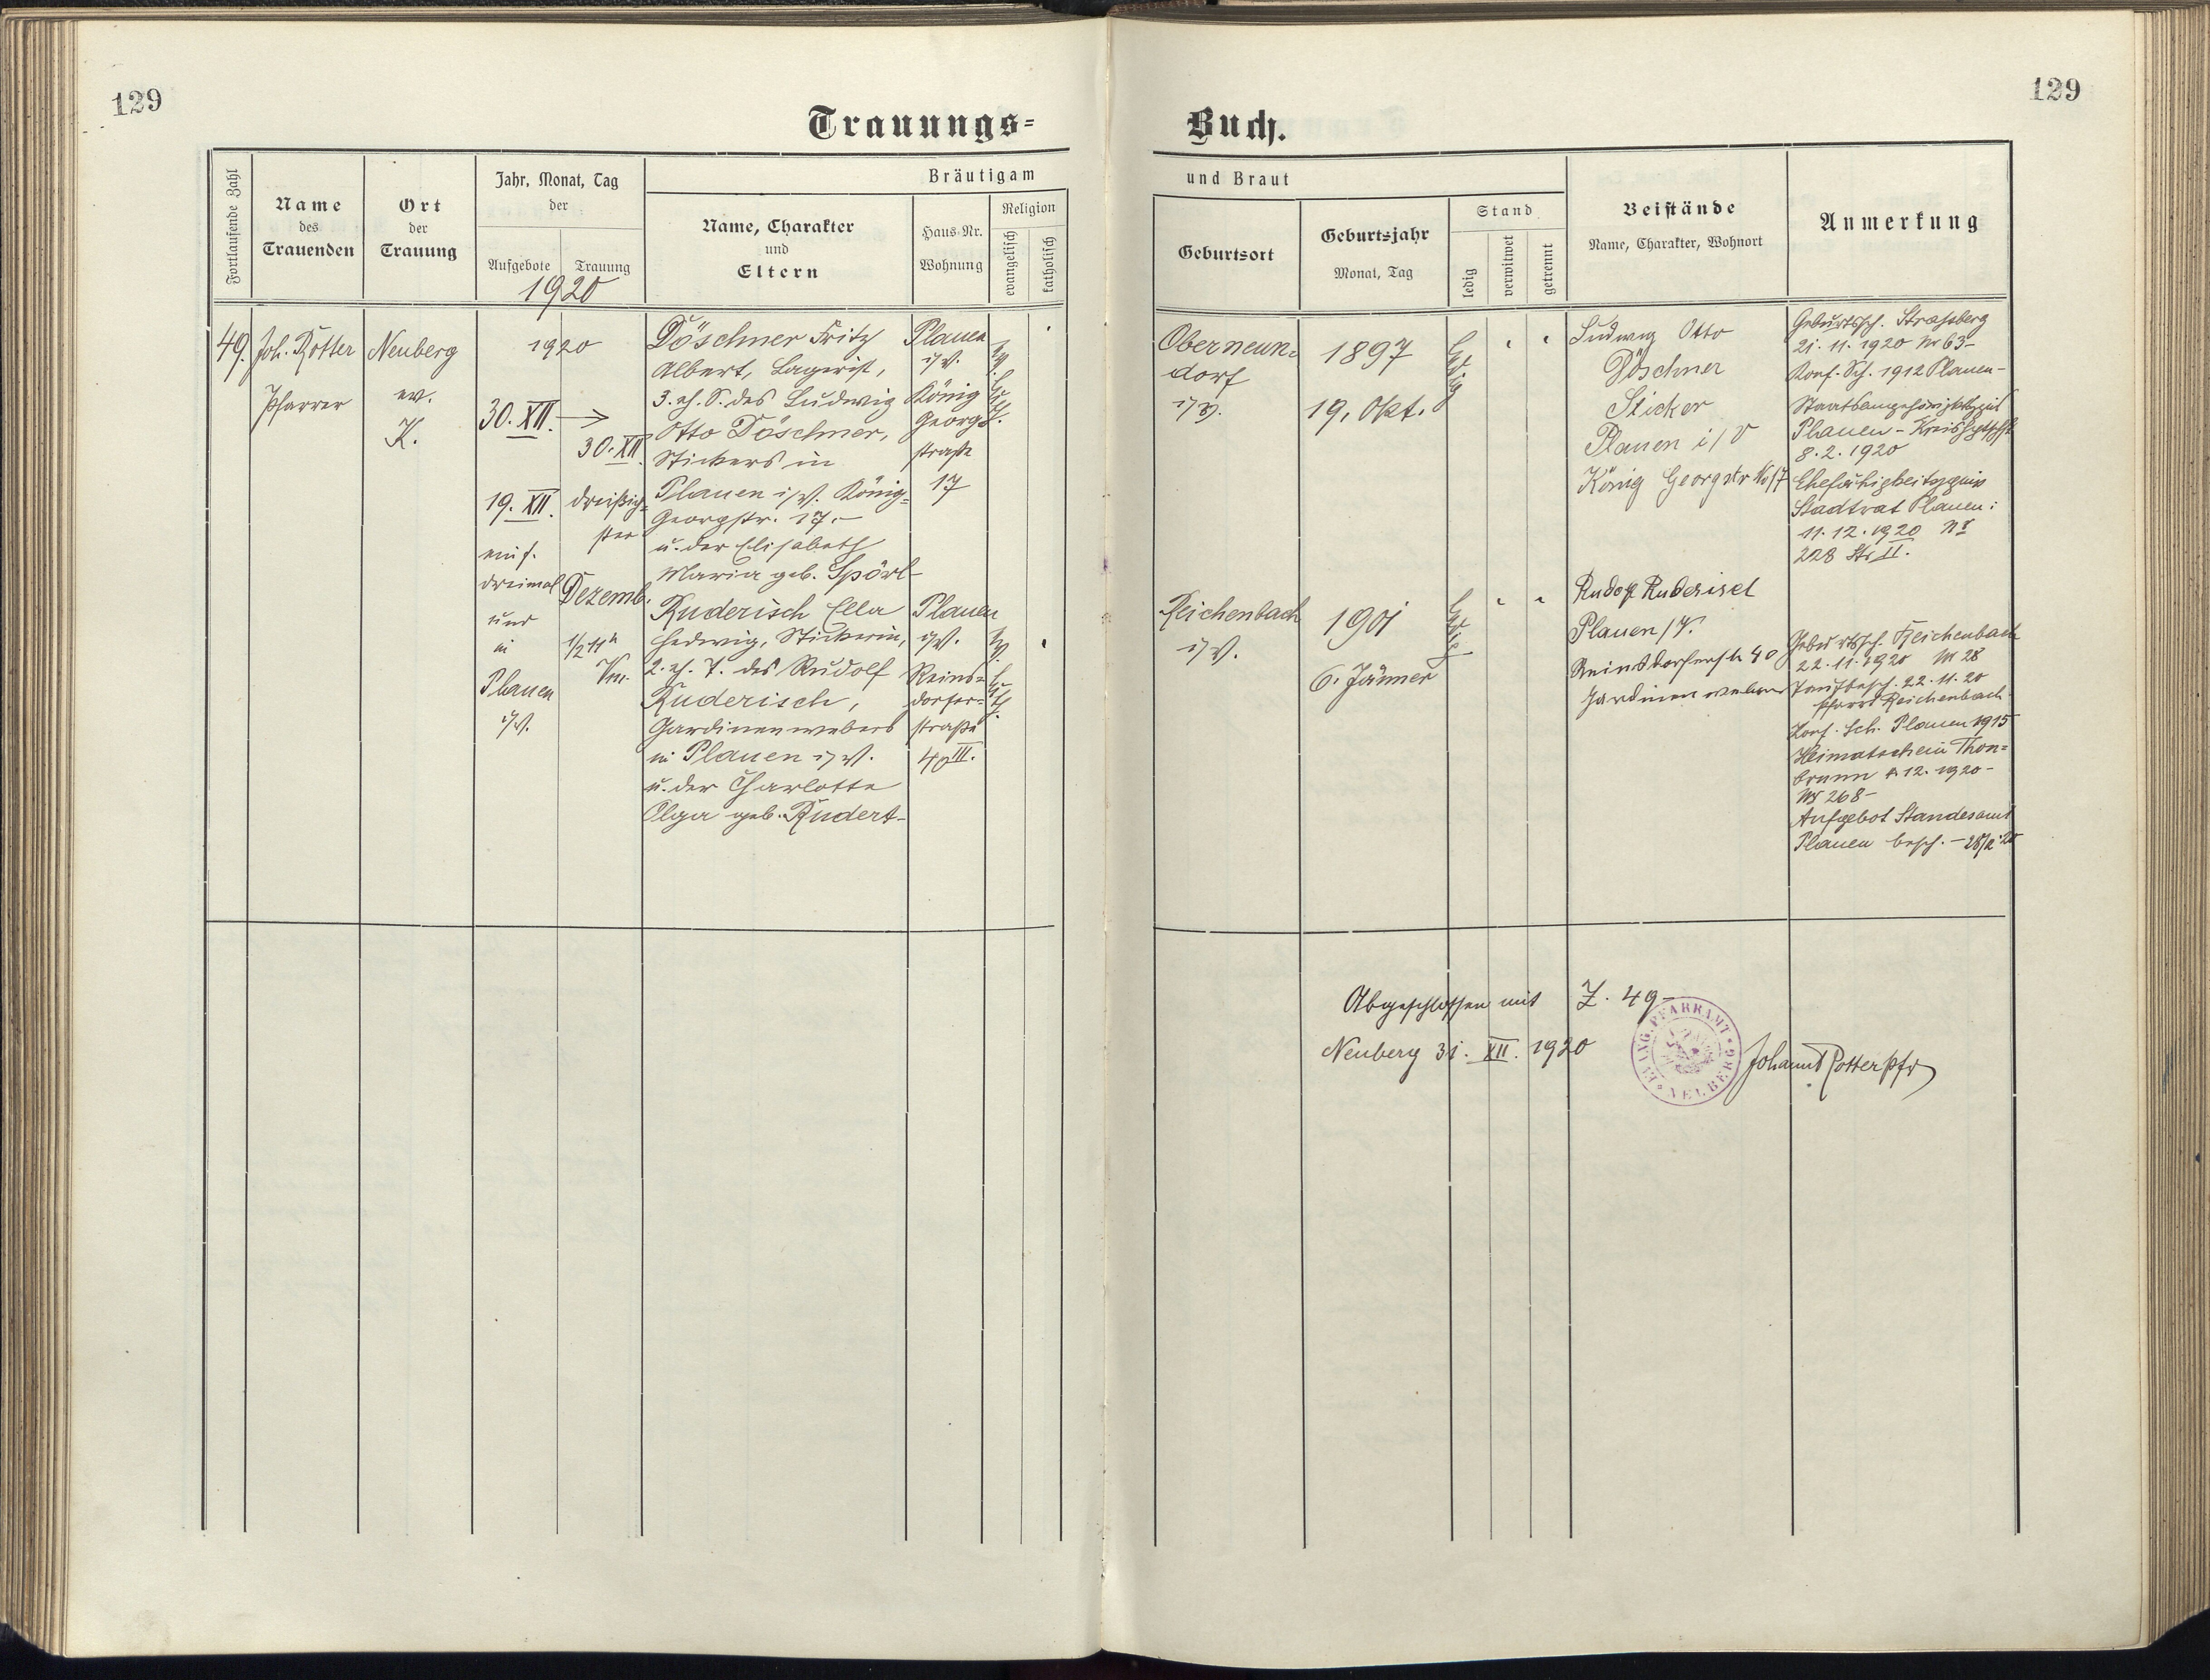 129
129
Trauungs=
Buch.
Fortlaufende Zahl
Name
des
Trauenden
Ort
der
Trauung
Jahr, Monat, Tag
der
Aufgebote
Trauung
1920
Bräutigam
Name, Charakter
und
Eltern
Haus-Nr.
Wohnung
Religion
evangelisch
katholisch
und Braut
Geburtsort
Geburtsjahr
Monat, Tag
Stand
ledig
verwitwet
getrennt
Beistände
Name, Charakter, Wohnort
Anmerkung
49.
Joh. Rotter
Pfarrer
Neuberg
ev.
K.
1920
30. XII.
30. XII
19. XII.
dreimal
und
in
Plauen
i/V.
dreißig=
ster
Dezemb.
1/2 11 h
Vm.
Döschner Fritz
Albert, Lagerist,
3. eh. S. des Ludwig
Otto Döschner,
Stickers in
Plauen i/V. König=
Georgstr. 17.-
u. der Elisabeth
Maria geb. Spörl-
Plauen
i/V.
König
Georg=
straße
17
Ruderisch Ella
Hedwig, Stickerin,
2. eh. T. des Rudolf
Ruderisch,
Gardinenwebers
in Plauen i/V.
u. der Charlotte
Olga geb. Rudert-
Plauen
i/V.
Reins=
dorfer=
straße
40 III.
Oberneun=
dorf
1897
19. Okt.
ledig
Ludwig Otto
Döschner
Sticker
Plauen i/V
König Georgstr No 17
Geburtssch. Strassberg
21. 11. 1920 Nr 63-
Konf. Sch. 1912 Plauen-
Plauen - Kreishptschft
8. 2. 1920
Stadtrat Plauen:
11. 12. 1920 Nr
228 Str II.
Reichenbach
i/V.
1901
6. Jänner
ledig
Rudolf Ruderisch
Plauen /V.
Reinsdorferstr 40
Gardinenweber
Geburtssch. Reichenbach
22. 11. 1920 Nr 28
Taufbesch. 22. 11. 20
Pfarrt Reichenbach
Konf. Sch. Plauen 1915
Heimatschein Thon=
brunn 12. 1920-
Nr 268-
Aufgebot Standesamt
Plauen besch.
Abgeschlossen mit Z. 49-
Neuberg 31. XII. 1920
EVANG. PFARRAMT NEUBERG
Johann Rotter Pfr